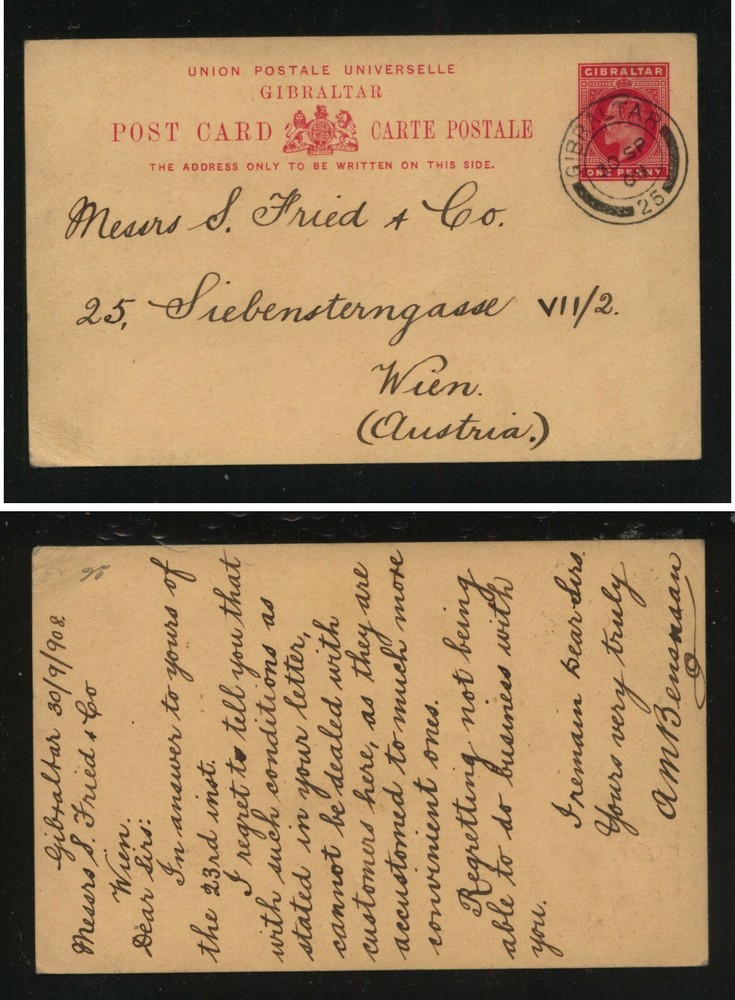 UNION POSTALE UNIVERSELLE
GIBRALTAR
POST CARD CARTE POSTALE
THE ADDRESS ONLY TO BE WRITTEN ON THIS SIDE.
GIBRALTAR
ONE PENNY
GIBRALTAR
30 SP
08
25
Messrs S. Fried & Co.
25, Siebensterngasse VII/2.
Wien.
(Austria.)
Gibraltar 30/9/908
Messrs S. Fried & Co
Wien.
Dear Sirs:
In answer to yours of
the 23rd inst.
I regret to tell you that
with such conditions as
stated in your letter,
cannot be dealed with
customers here, as they are
accustomed to much more
convinient ones.
Regretting not being
able to do business with
you.
I remain Dear Sirs
Yours very truly
AM Bensusan